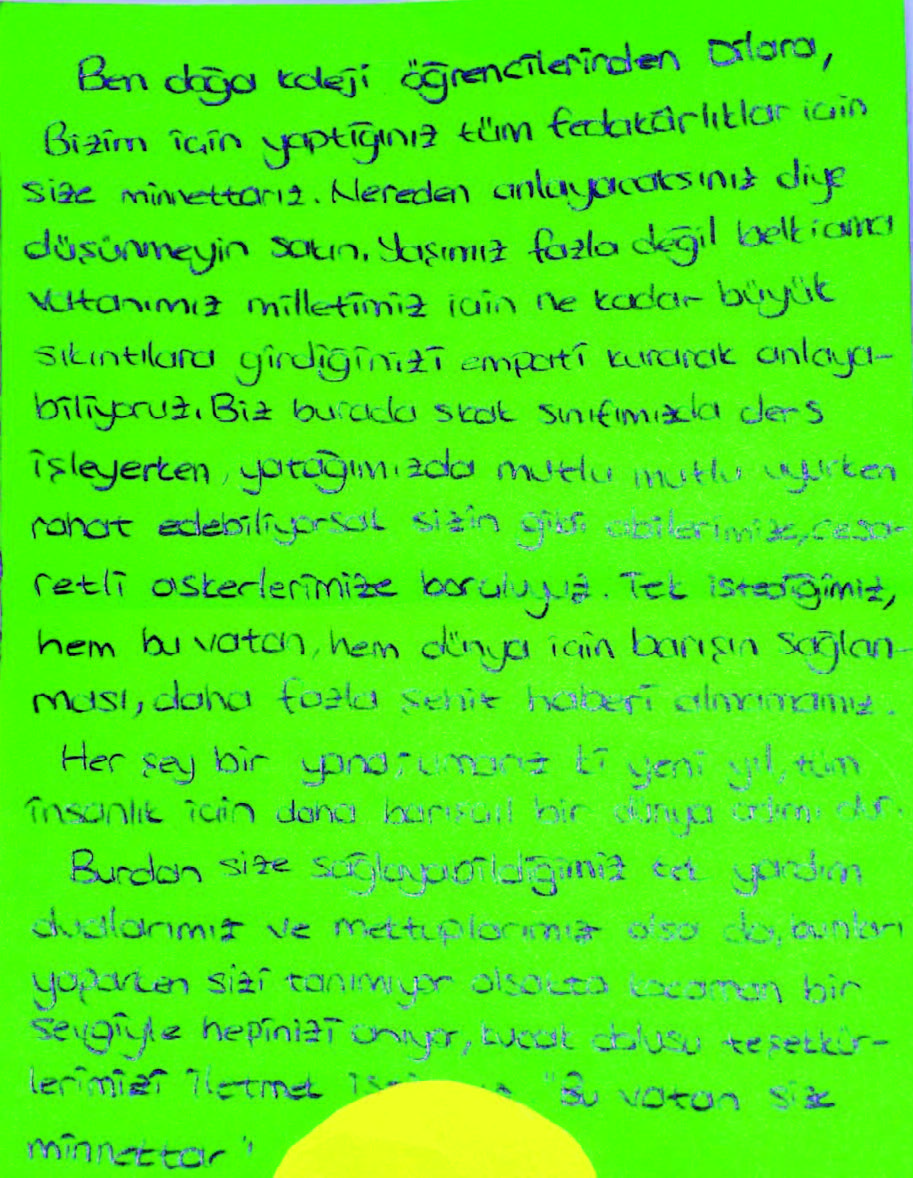 Ben doğa koleji öğrencilerinden Dilara,
Bizim için yaptığınız tüm fedakârlıklar için
size minnettarız. Nereden anlayacaksınız diye
düşünmeyin sakın. Yaşımız fazla değil belki ama
vatanımız milletimiz için ne kadar büyük
sıkıntılara girdiğinizi empati kurarak anlaya-
biliyoruz. Biz burada sıcak sınıfımızda ders
işleyerken, yatağımızda mutlu mutlu uyurken
rahat edebiliyorsak sizin gibi abilerimize, cesa-
retli askerlerimize borçluyuz. Tek istediğimiz,
hem bu vatan, hem dünya için barışın sağlan-
ması, daha fazla şehit haberi almamamız.
Her şey bir yana; umarız ki yeni yıl, tüm
insanlık için daha barışçıl bir dünya adımı olur.
Burdan size sağlayabildiğimiz tek yardım
dualarımız ve mektuplarımız olsa da, bunları
yaparken sizi tanımıyor olsakta kocaman bir
sevgiyle hepinizi anıyor, kucak dolusu teşekkür-
lerimizi iletmek "Bu vatan size
minnettar"